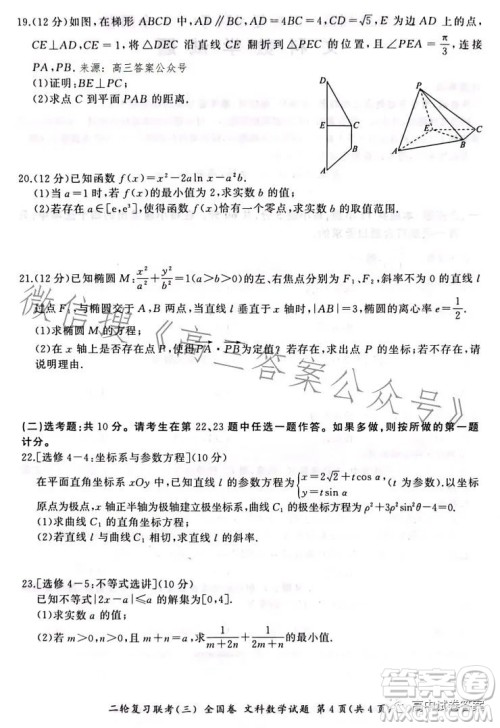 19.(12分)如图,在梯形ABCD中,AD∥BC,AD=4BC=4,CD=√5,E为边AD上的点,
CE⊥AD,将△DEC沿直线CE翻折到△PEC的位置,且∠PEA=π/3,连接
PA,PB. 来源:高三答案公众号
(1)证明:BE⊥PC;
(2)求点C到平面PAB的距离.
D
E C
B
A
P
E C
B
A
20.(12分)已知函数f(x)=x²-2aln x-a²b.
(1)当a=1时,若f(x)的最小值为2,求实数b的值;
(2)若存在a∈[e,e³],使得函数f(x)恰有一个零点,求实数b的取值范围.
21.(12分)已知椭圆M:x²/a²+y²/b²=1(a>b>0)的左、右焦点分别为F₁、F₂,斜率不为0的直线l
过点F₁,与椭圆交于A,B两点,当直线l垂直于x轴时,|AB|=3,椭圆的离心率e=1/2.
(1)求椭圆M的方程;
(2)在x轴上是否存在点P,使得PA·PB为定值?若存在,求出点P的坐标;若不存在,请
说明理由.
微信搜《高三答案公众号》
(二)选考题:共10分。请考生在第22、23题中任选一题作答。如果多做,则按所做的第一题
计分。
22.[选修4-4:坐标系与参数方程](10分)
在平面直角坐标系xOy中,曲线C₁的参数方程为{x=2√2+tcos α, y=tsin α (t为参数).以坐标
原点为极点,x正半轴为极轴建立极坐标系,
(1)求曲线C₁的直角坐标方程;
23.[选修4-5:不等式选讲](10分)
的解集为[0,4].
(1)求实数a的值;
二轮复习联考(三) 全国卷 文科数学试题 第4页(共4页)
高中试卷答案